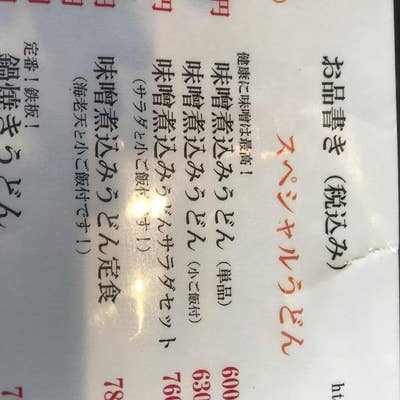 お品書き（税込み）
スペシャルうどん
健康に味噌は最高！
味噌煮込みうどん（単品） 600
味噌煮込みうどん（小ご飯付） 630
味噌煮込みうどんサラダセット 760
（サラダと小ご飯付です！）
味噌煮込みうどん定食 78
（海老天と小ご飯付です！）
定番！鉄板！
鍋焼きうどん